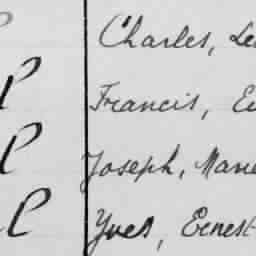 Charles, Le
P Francis, E
P Joseph, Marie
P Yves, Ernest